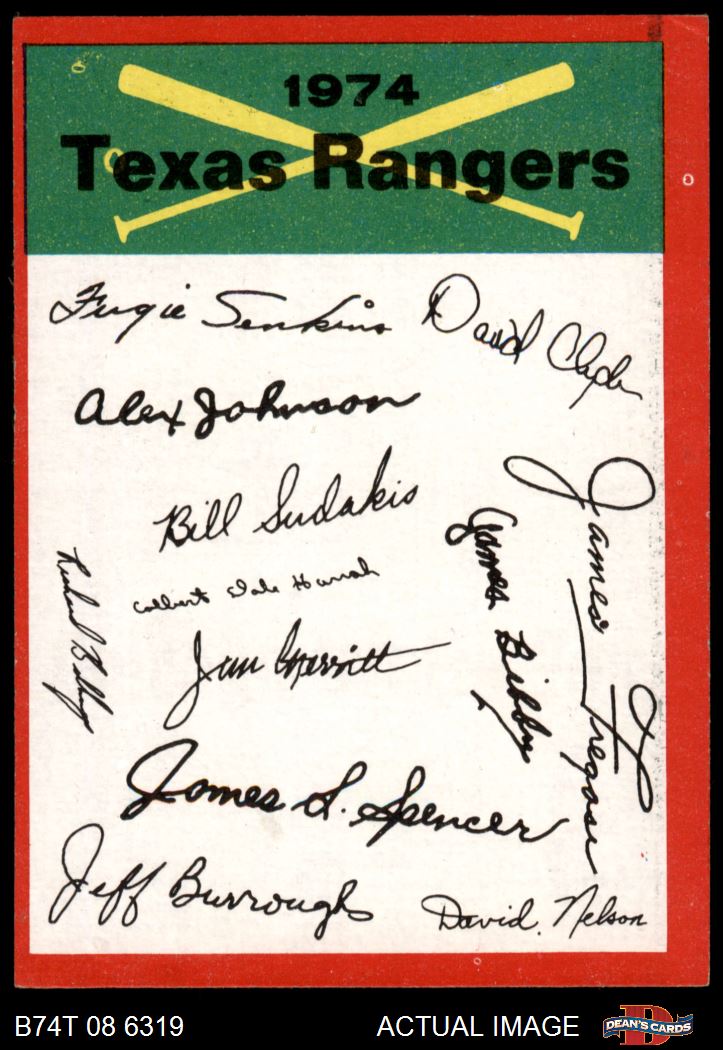 1974
Texas Rangers
Fergie Jenkins
David Clyde
Alex Johnson
Bill Sudakis
James Fregosi
James Bibby
Richard Billings
Jim Merritt
James L. Spencer
Jeff Burroughs
David Nelson
B74T 08 6319
ACTUAL IMAGE
DEAN'S CARDS